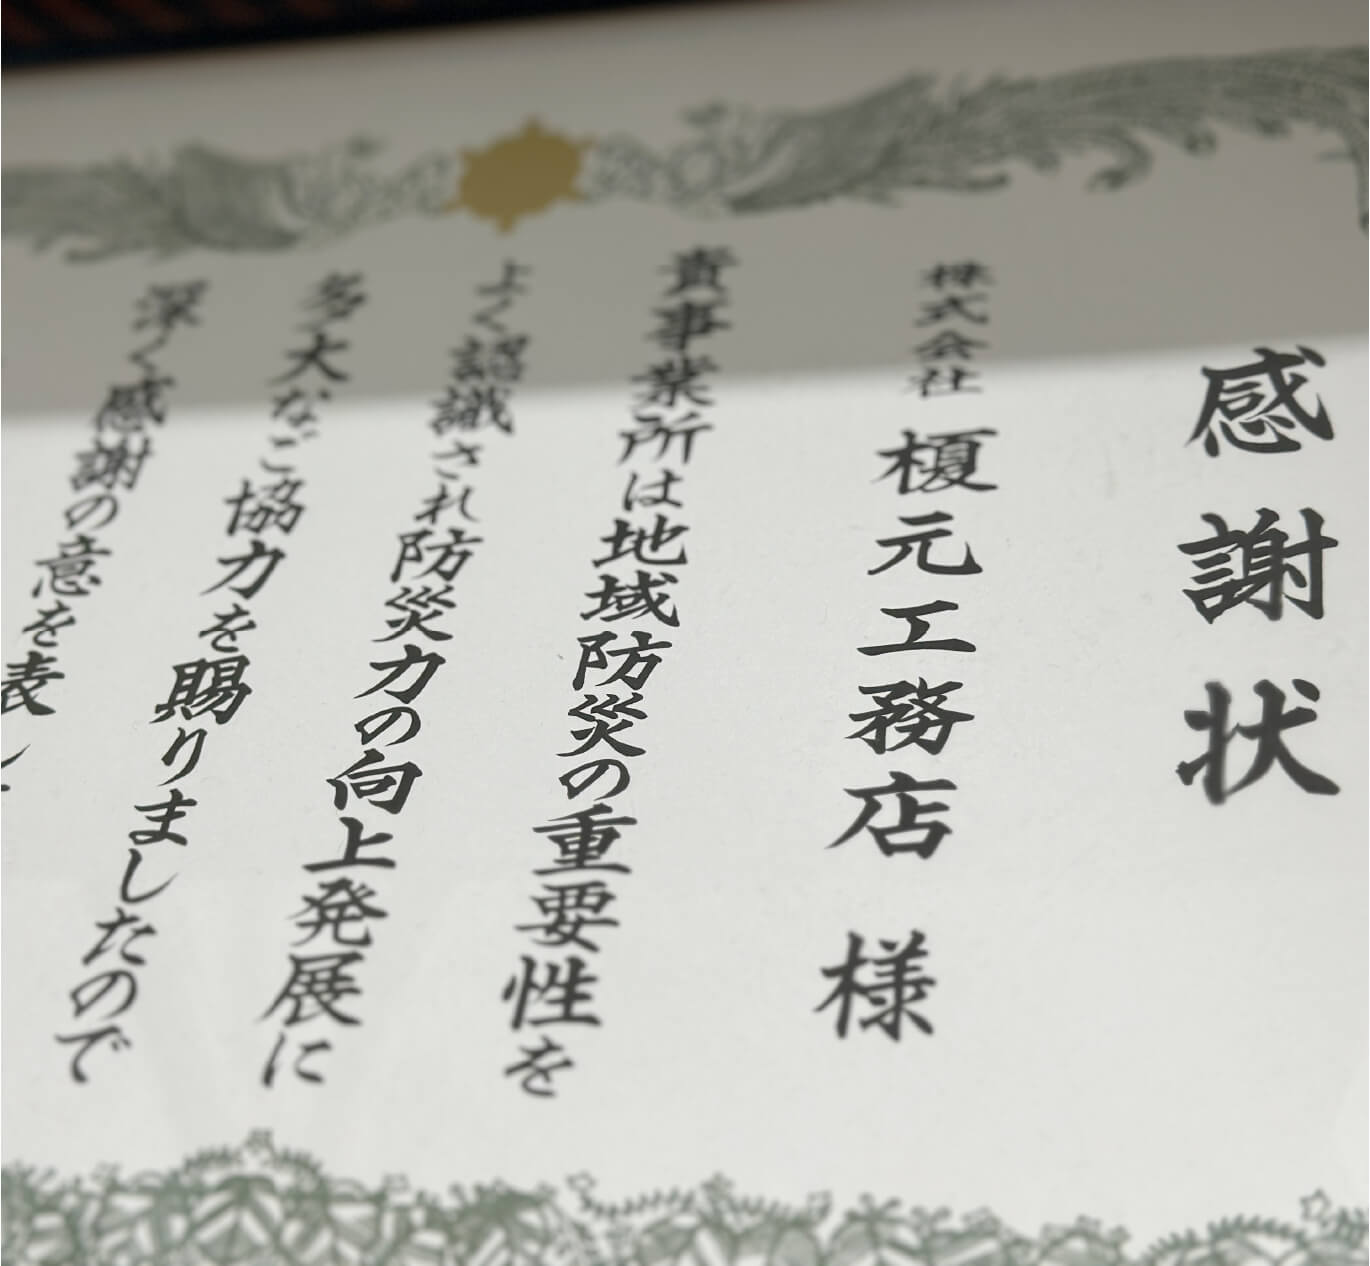 感謝状
株式会社 榎元工務店 様
貴事業所は地域防災の重要性を
よく認識され防災力の向上発展に
多大なご協力を賜りましたので
深く感謝の意を表し